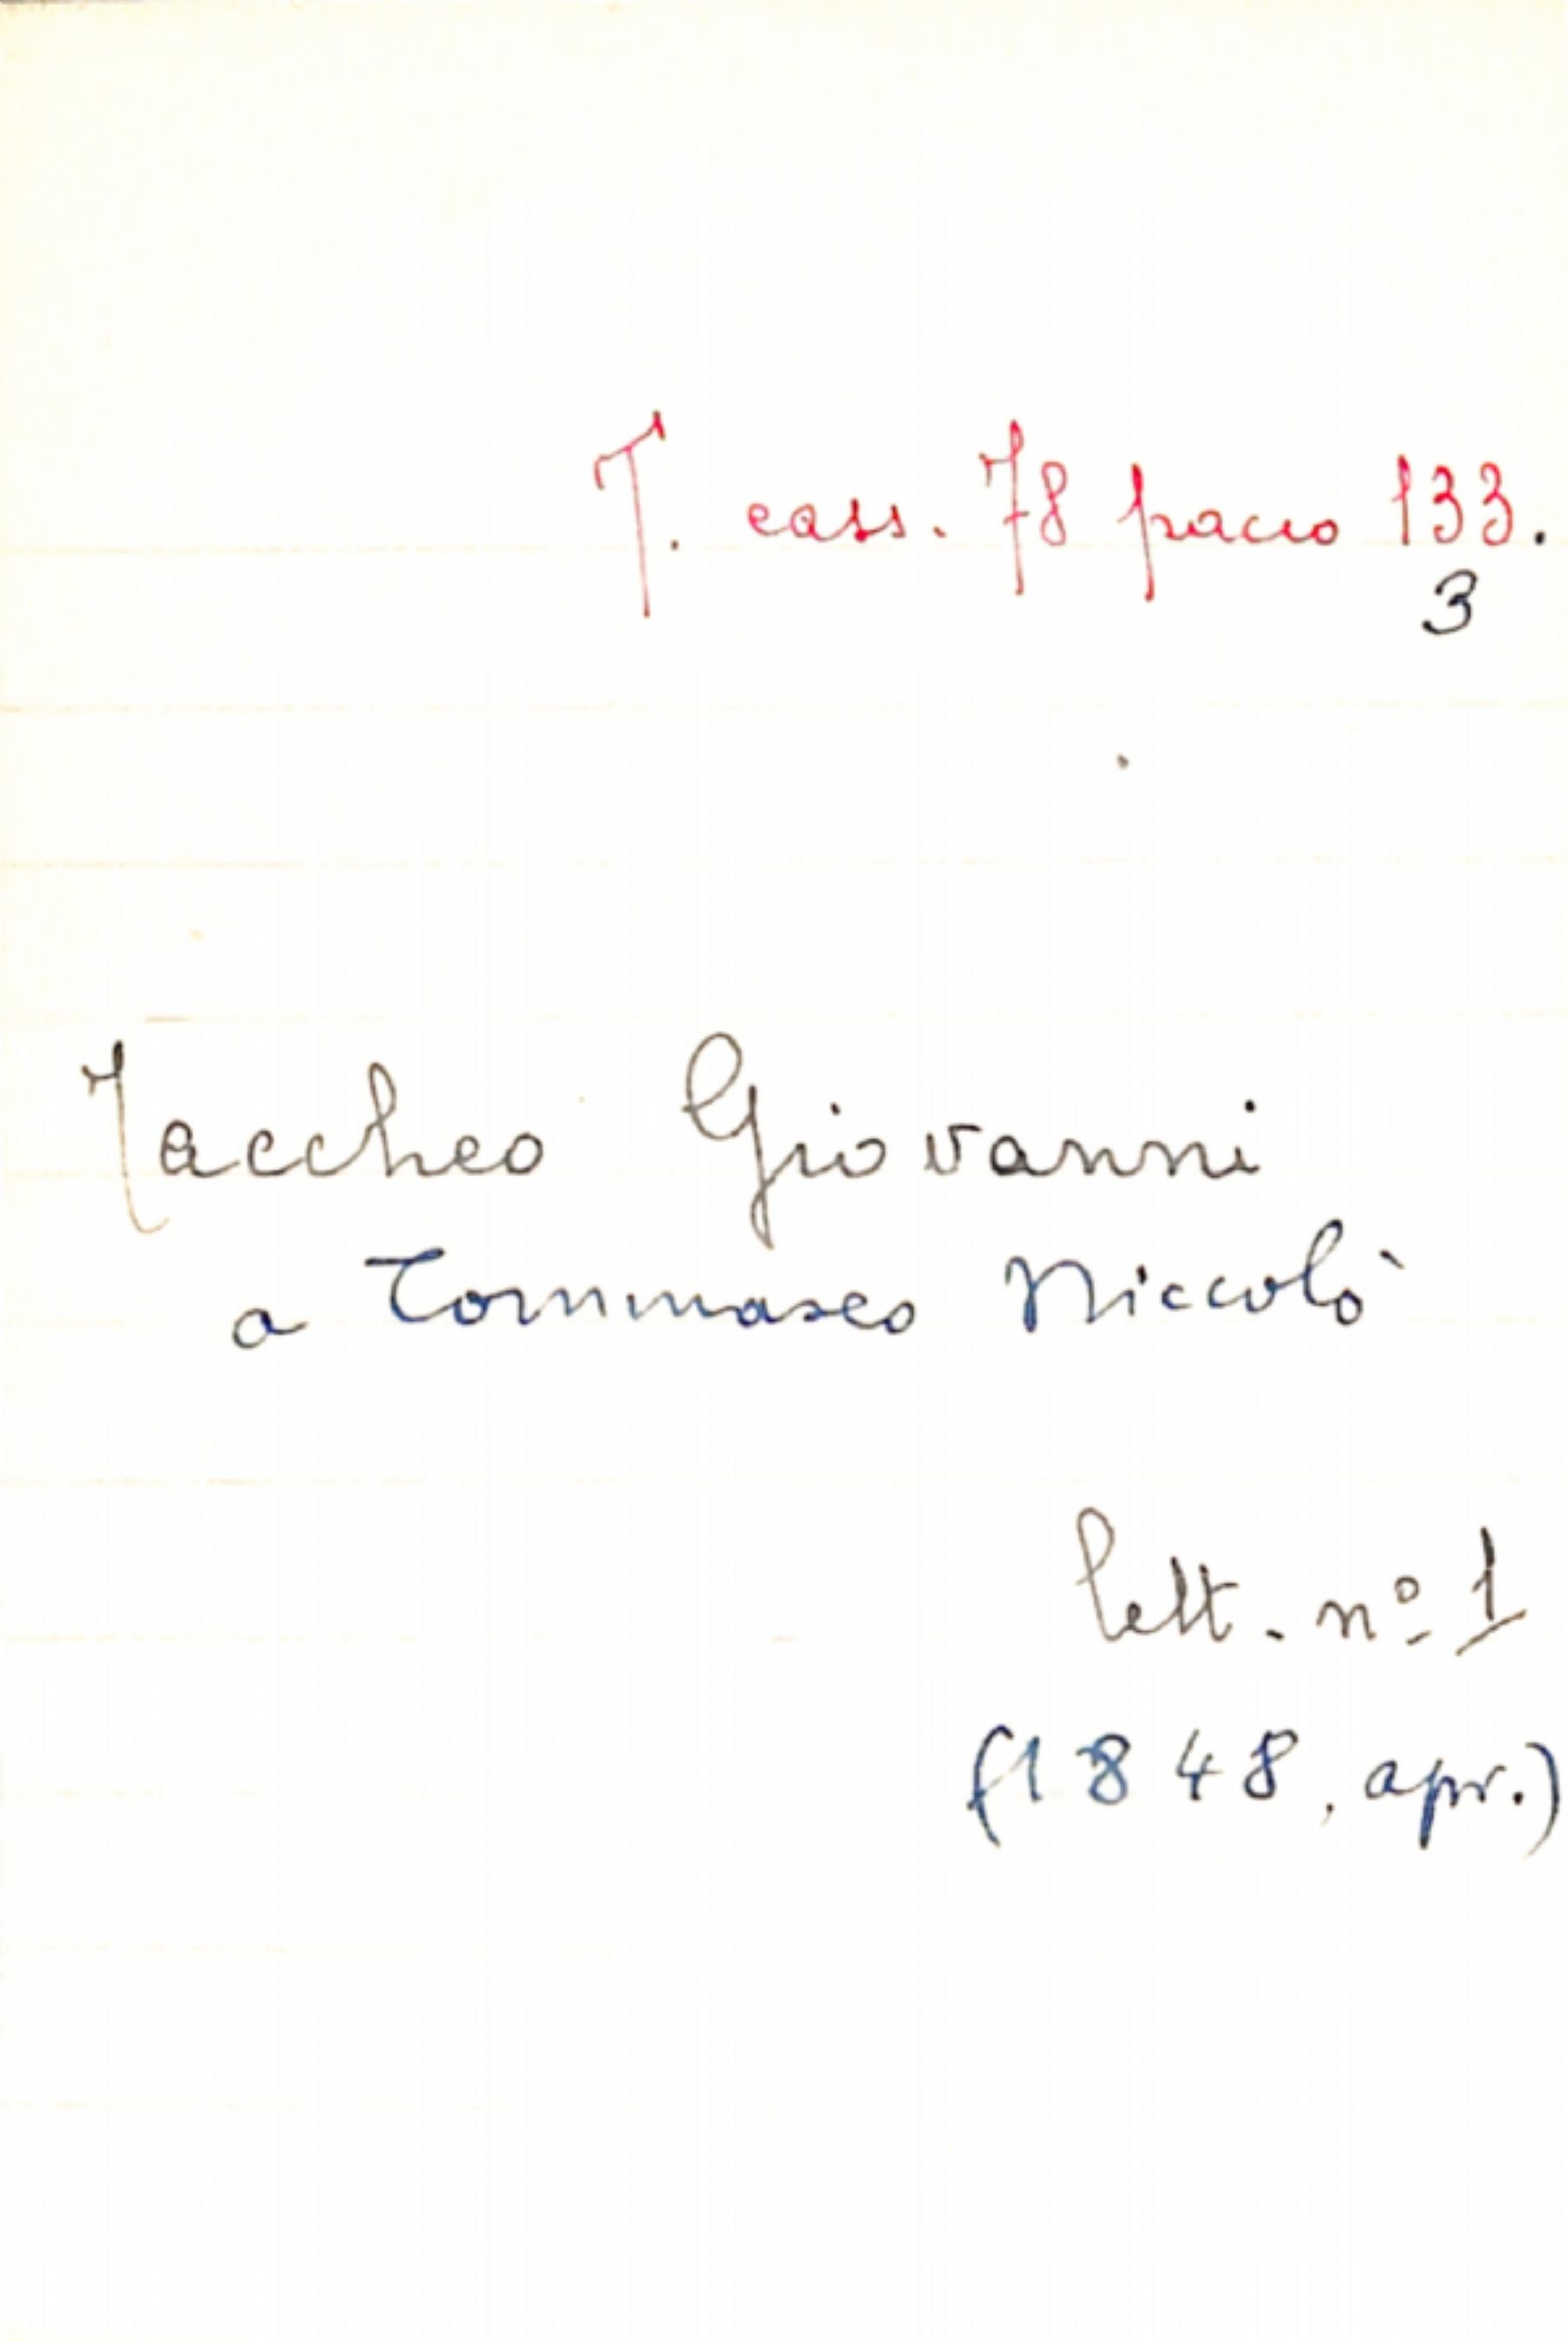 T. cass. 78 pacco 133.
3
Taccheo Giovanni
a Tommaseo Niccolò
lett. nº 1
(1848, apr.)